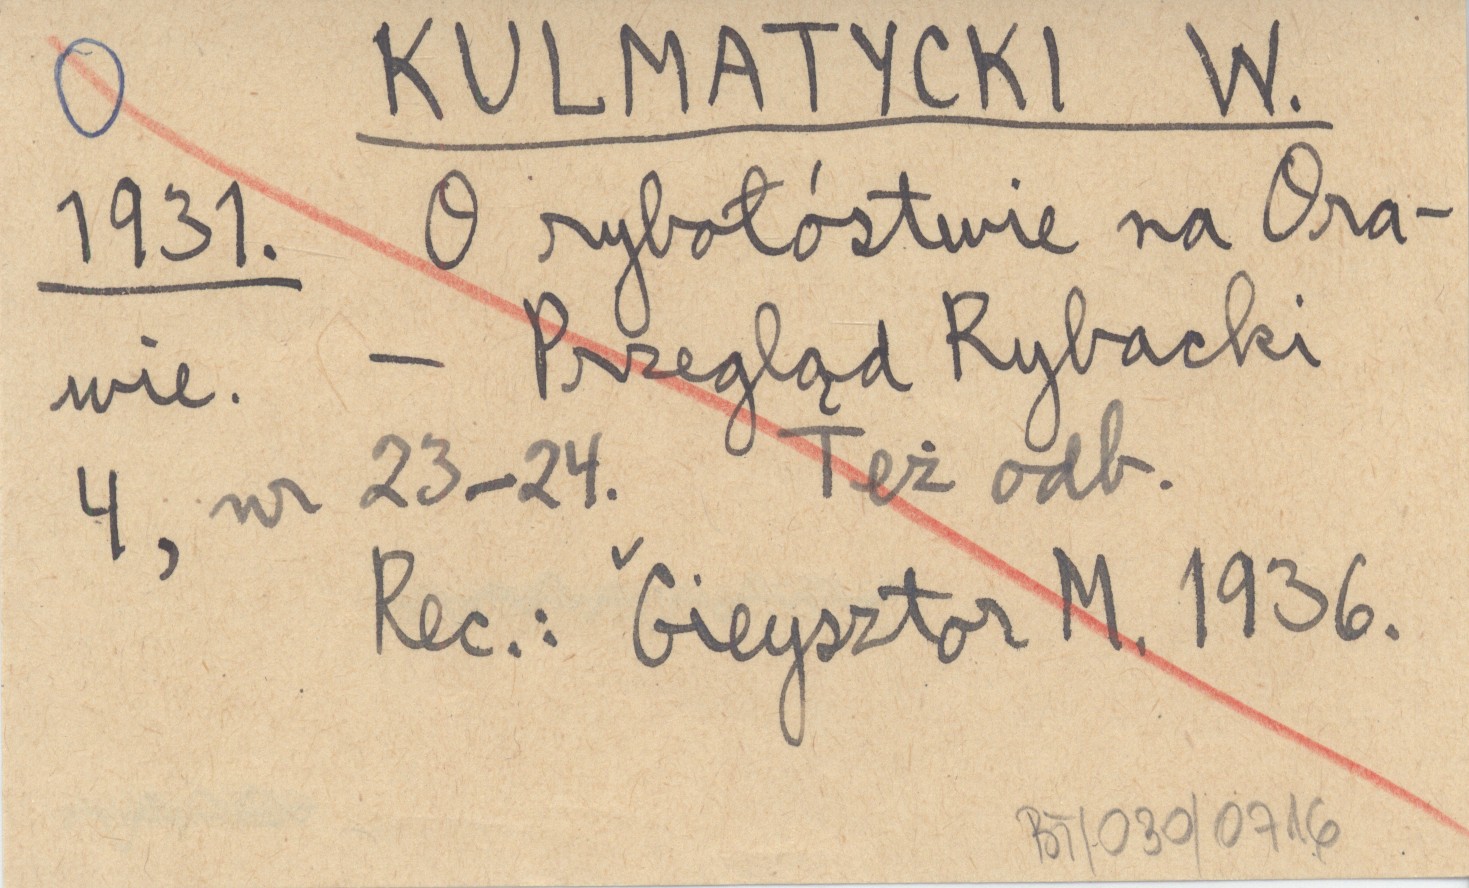 KULMATYCKI W.
1931. O rybołóstwie na Ora-
wie. – Przegląd Rybacki
4, nr 23-24. Też odb.
Rec.: Gieysztor M. 1936.
BT/030/0716